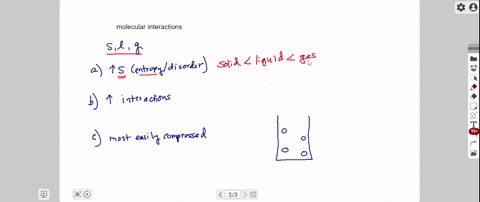 molecular interactions
s, l, g
a) ↑ S (entropy/disorder) solid < liquid < gas
b) ↑ interactions
c) most easily compressed
3/3